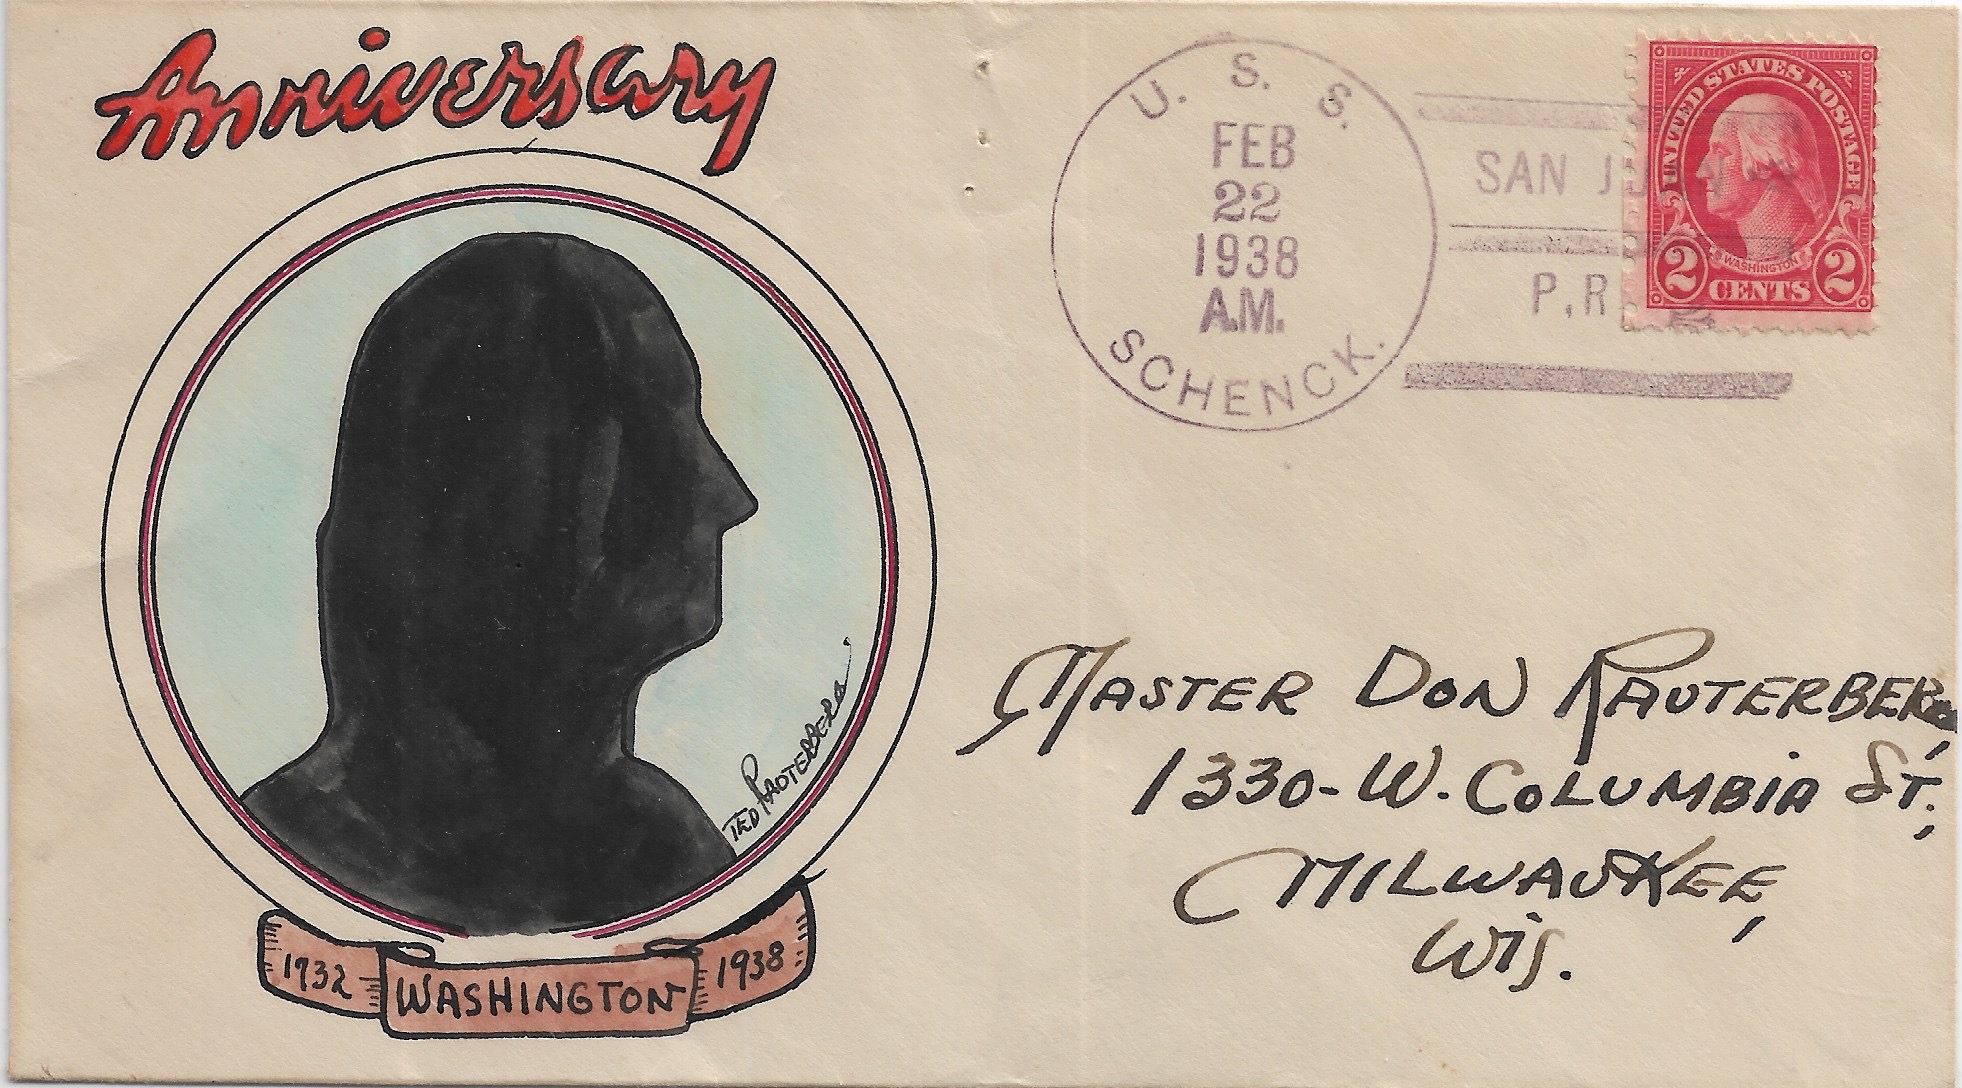 Anniversary
U. S. S.
FEB
22
1938
A.M.
SCHENCK.
SAN JUAN
P.R.
UNITED STATES POSTAGE
WASHINGTON
2 CENTS 2
TED RAUTERBERG
MASTER DON RAUTERBERG,
1330-W. COLUMBIA ST.,
MILWAUKEE,
WIS.
1732 WASHINGTON 1938